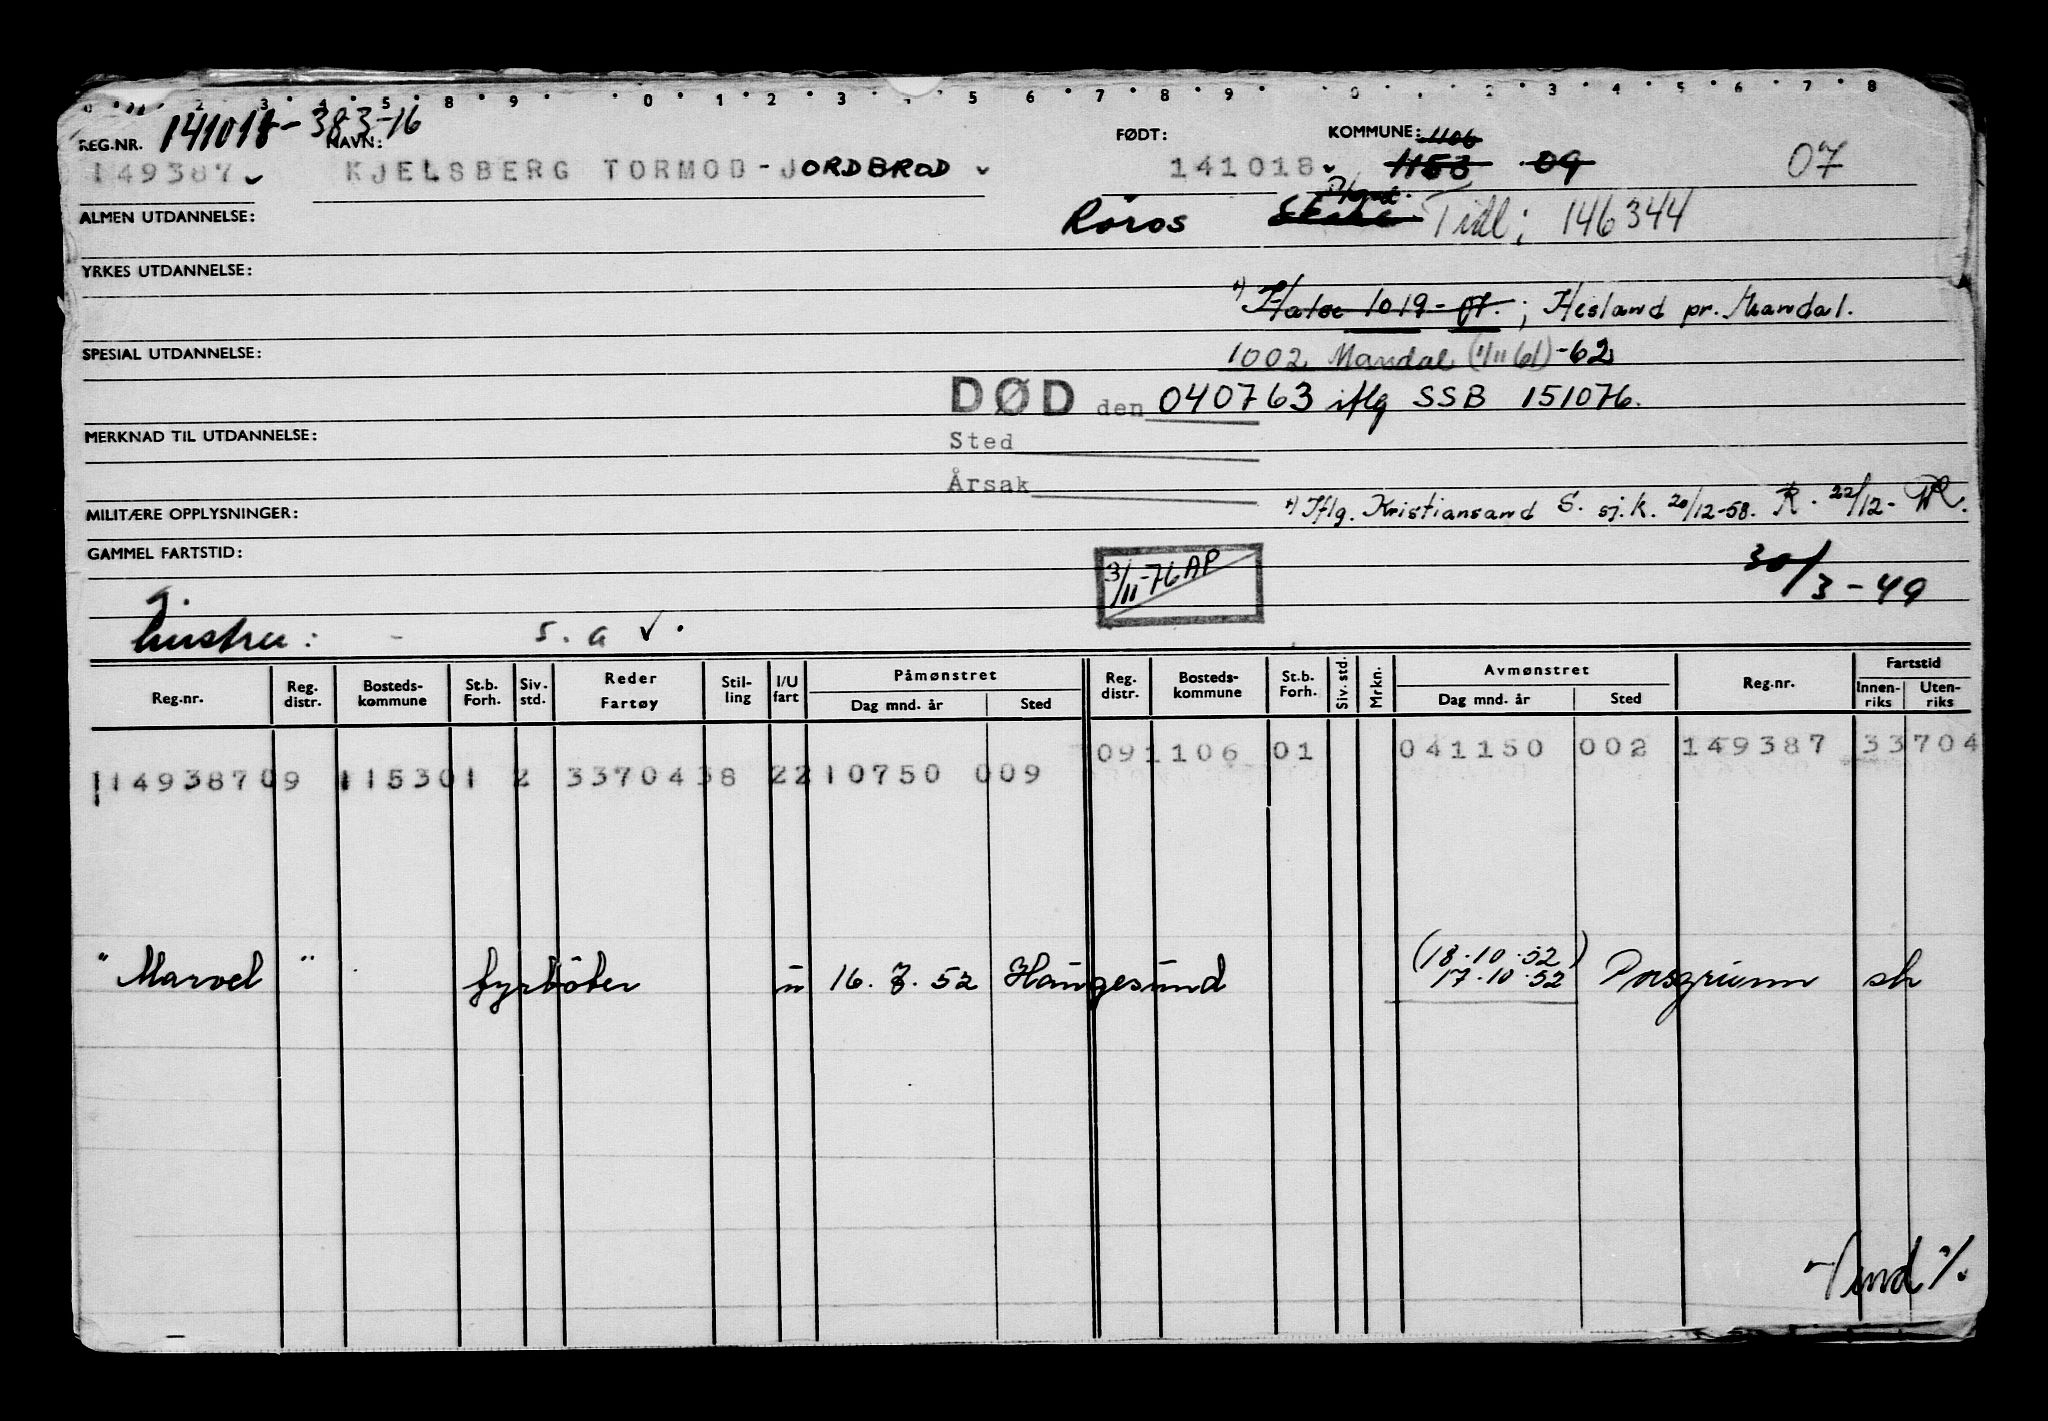 REG.NR. 141018-383-16 NAVN: FØDT: KOMMUNE: 1106
149387 KJELSBERG TORMOD-JORDBROD 141018 1153 09 07
ALMEN UTDANNELSE: Röros Tidl; 146344
YRKES UTDANNELSE:
*) Halse 1019-07.; Hesland pr. Mandal.
SPESIAL UTDANNELSE: 1002 Mandal (1/11 61)-62
DØD den 040763 iflg SSB 151076.
MERKNAD TIL UTDANNELSE: Sted
Årsak
MILITÆRE OPPLYSNINGER: *) Iflg. Kristiansand S. sj.k. 20/12-58. R. 22/12-
GAMMEL FARTSTID: 3/11-76 AP 30/3-49
hustru: - s. a √.
Reg.nr. Reg. distr. Bosteds-kommune St.b. Forh. Siv. std. Reder Fartøy Stil-ling I/U fart Påmønstret Dag mnd. år Sted Reg. distr. Bosteds-kommune St.b. Forh. Siv. std. Mrkn. Avmønstret Dag mnd. år Sted Reg.nr. Fartstid Innen-riks Uten-riks
091106 01 041150 002 149387 33704
14938709 115301 2 3370438 2210750 009
"Marvel" fyrböter u 16.7.52 Haugesund (18.10.52) 17.10.52 Porsgrunn sk
Vend %.